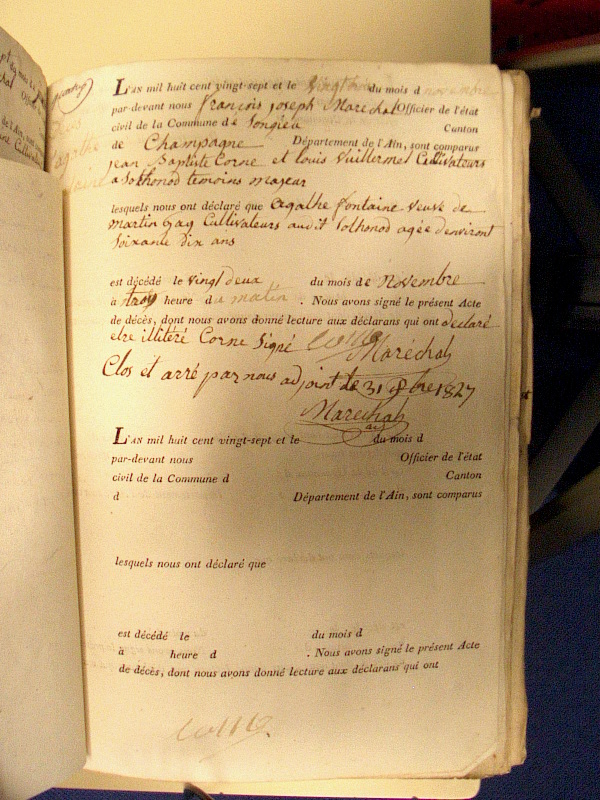 L'AN mil huit cent vingt-sept et le vingt trois du mois d novembre
par-devant nous françois joseph Marechal Officier de l'état
civil de la Commune de Songieu Canton
de Champagne Département de l'Ain, sont comparus
jean Baptiste Corne et louis Vuillermet Cultivateurs
a Sothonod temoins majeur
lesquels nous ont déclaré que Agathe fontaine veuve de
Martin Gay Cultivateurs audit Sothonod agée d'environt
Soixante dix ans
est décédé le vingt deux du mois de Novembre
à troy heure du matin . Nous avons signé le présent Acte
de décès, dont nous avons donné lecture aux déclarans qui ont declaré
etre illitéré Corne Signé Corne Maréchal
Clos et arré par nous adjoint le 31 Xbre 1827
Marechal
L'AN mil huit cent vingt-sept et le du mois d
par-devant nous Officier de l'état
civil de la Commune d Canton
d Département de l'Ain, sont comparus
lesquels nous ont déclaré que
est décédé le du mois d
à heure d . Nous avons signé le présent Acte
de décès, dont nous avons donné lecture aux déclarans qui ont